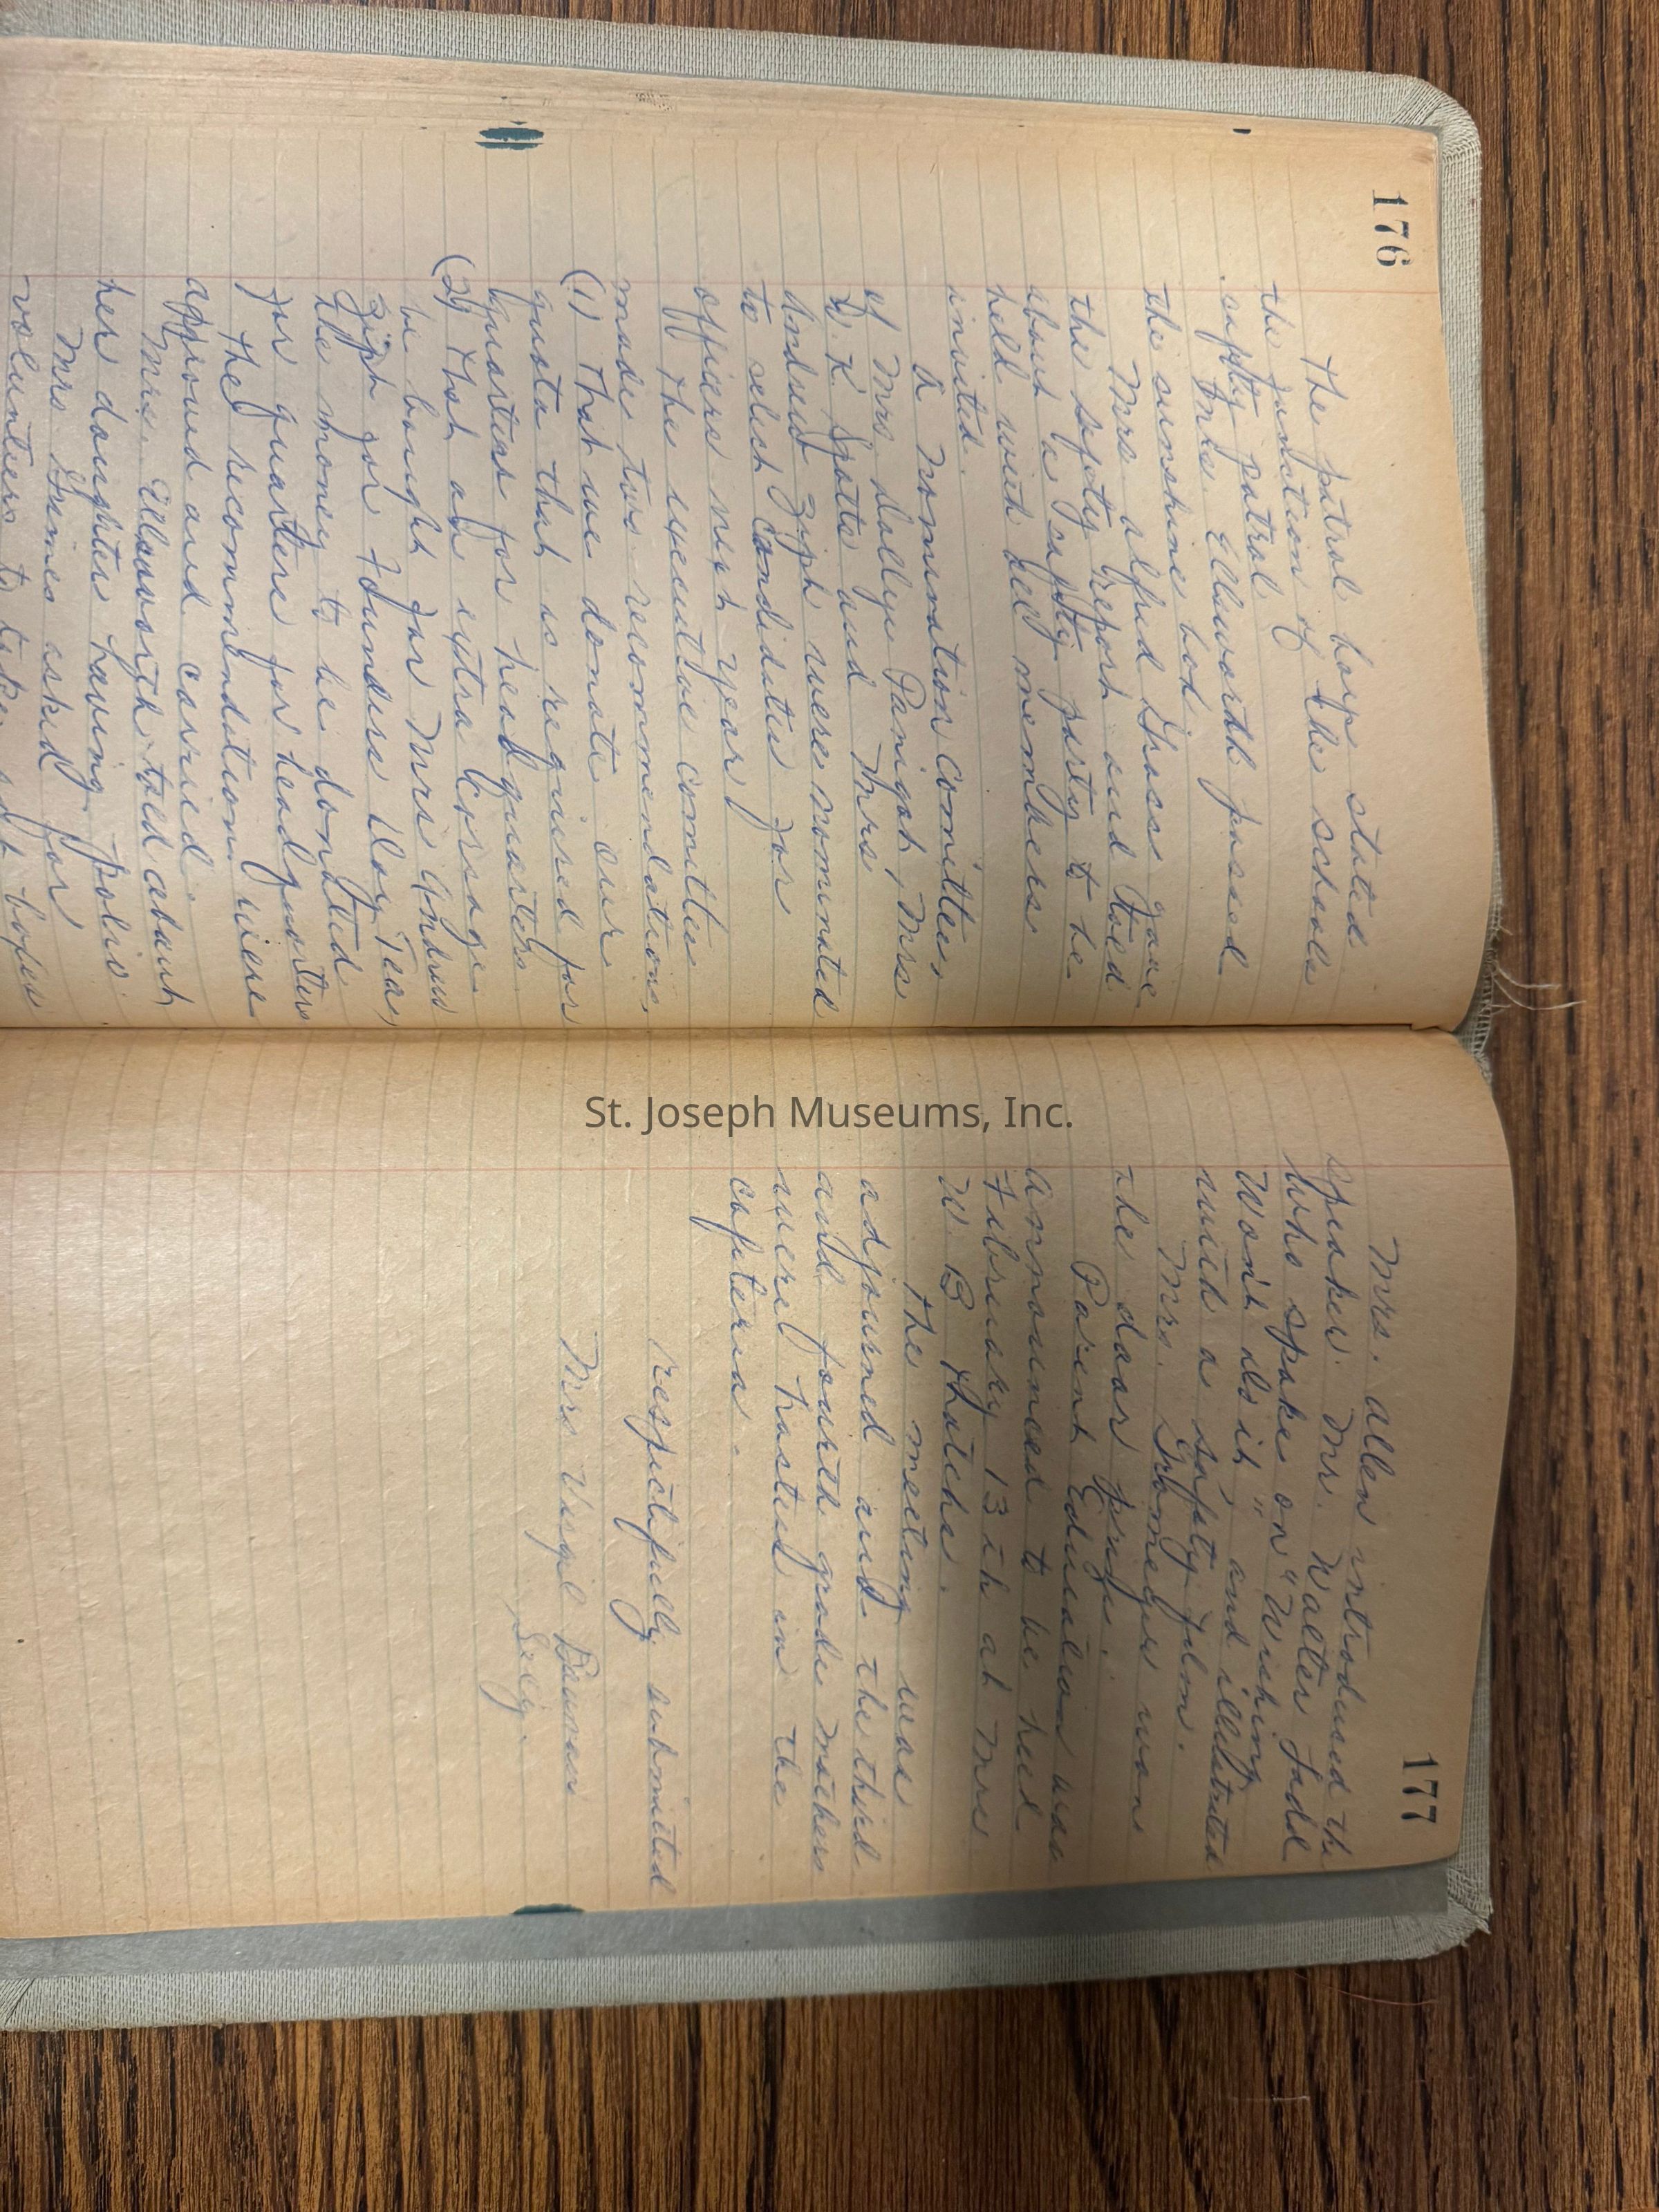 176
The patrol boys stated
the function of the schools
safty patrol.
Mrs. Ellsworth passed
the sunshine box.
Mrs. Alfred Grass gave
the safty report and told
about a safty party to be
held with all members
invited.
A nomination comittee,
of Mrs. Dollye Panigot, Mrs
W. K. Spate and Mrs
Andrew Ziph were nominated
to select candidates for
officers next year.
The executive comittee
made two recommendations,
(1) That we donate our
quota that is required for
quarters for headquarters.
(2) That an extra corsage
be bought for Mrs Andrew
Ziph for Founders Day Tea,
the money to be donated
for quarters for headquarters
The recommendation were
approved and carried.
Mrs. Ellsworth told about
her daughter having polio.
Mrs. Grimes asked for
volunteers to take
177
Mrs. Allen introduced the
speaker. Mr. Walter Judd
who spoke on "Wishing
Won't do it," and illistrated
with a safty film.
Mrs. won
the door prize.
Parent Education was
announced to be held
Fibruary 13th at Mrs
W. B
The meeting was
adjourned and the third
and fourth grade mothers
were hostess in the
cafeteria.
respectifully submitted
Mrs Virgil
Secy.
St. Joseph Museums, Inc.